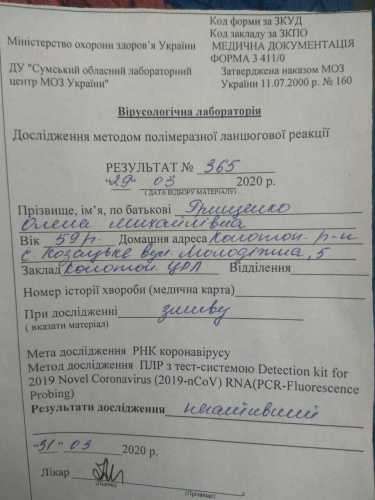 Код форми за ЗКУД
Код закладу за ЗКПО
Міністерство охорони здоров'я України
МЕДИЧНА ДОКУМЕНТАЦІЯ
ФОРМА З 411/0
ДУ "Сумський обласний лабораторний
центр МОЗ України"
Затверджена наказом МОЗ
України 11.07.2000 р. № 160
Вірусологічна лабораторія
Дослідження методом полімеразної ланцюгової реакції
РЕЗУЛЬТАТ № 365
"29" 03 2020 р.
( ДАТА ВІДБОРУ МАТЕРІАЛУ)
Прізвище, ім'я, по батькові Грищенко
Олена Михайлівна
Вік 59 р. Домашня адреса Конотоп. р-н
с. Козацьке вул. Молодіжна, 5
Заклад Конотоп ЦРЛ Відділення
Номер історії хвороби (медична карта)
При дослідженні змиву
( вказати матеріал)
Мета дослідження РНК коронавірусу
Метод дослідження ПЛР з тест-системою Detection kit for
2019 Novel Coronavirus (2019-nCoV) RNA(PCR-Fluorescence
Probing)
Результати дослідження
"31" 03 2020 р.
Лікар
(Підпис) (Прізвище)